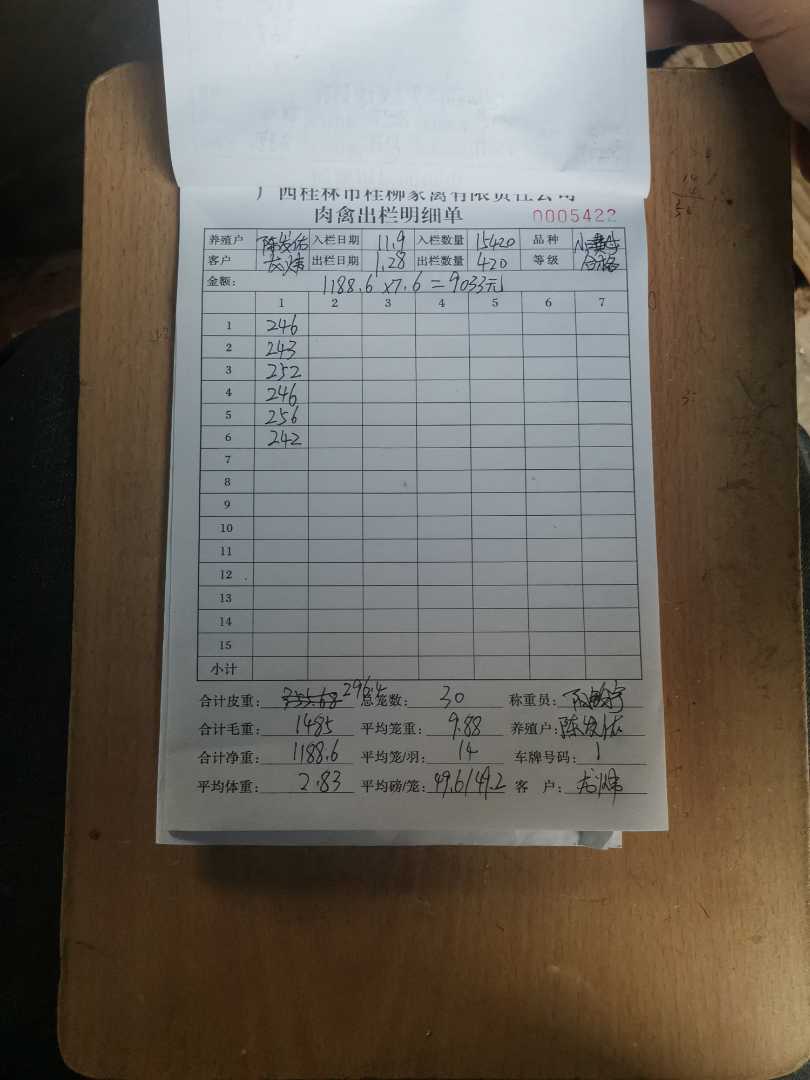 广西桂林市桂柳家禽有限责任公司
肉禽出栏明细单 0005422
养殖户 陈发佑 入栏日期 11.9 入栏数量 15420 品种
客户 入栏日期 1.28 出栏数量 420 等级 合格
金额: 1188.6×7.6=9033元
1 2 3 4 5 6 7
1 246
2 243
3 252
4 246
5 256
6 242
7
8
9
10
11
12
13
14
15
小计
合计皮重: 296.4 总笼数: 30 称重员:
合计毛重: 1485 平均笼重: 9.88 养殖户: 陈发佑
合计净重: 1188.6 平均笼/羽: 14 车牌号码: 1
平均体重: 2.83 平均磅/笼: 49.6/49.2 客户: